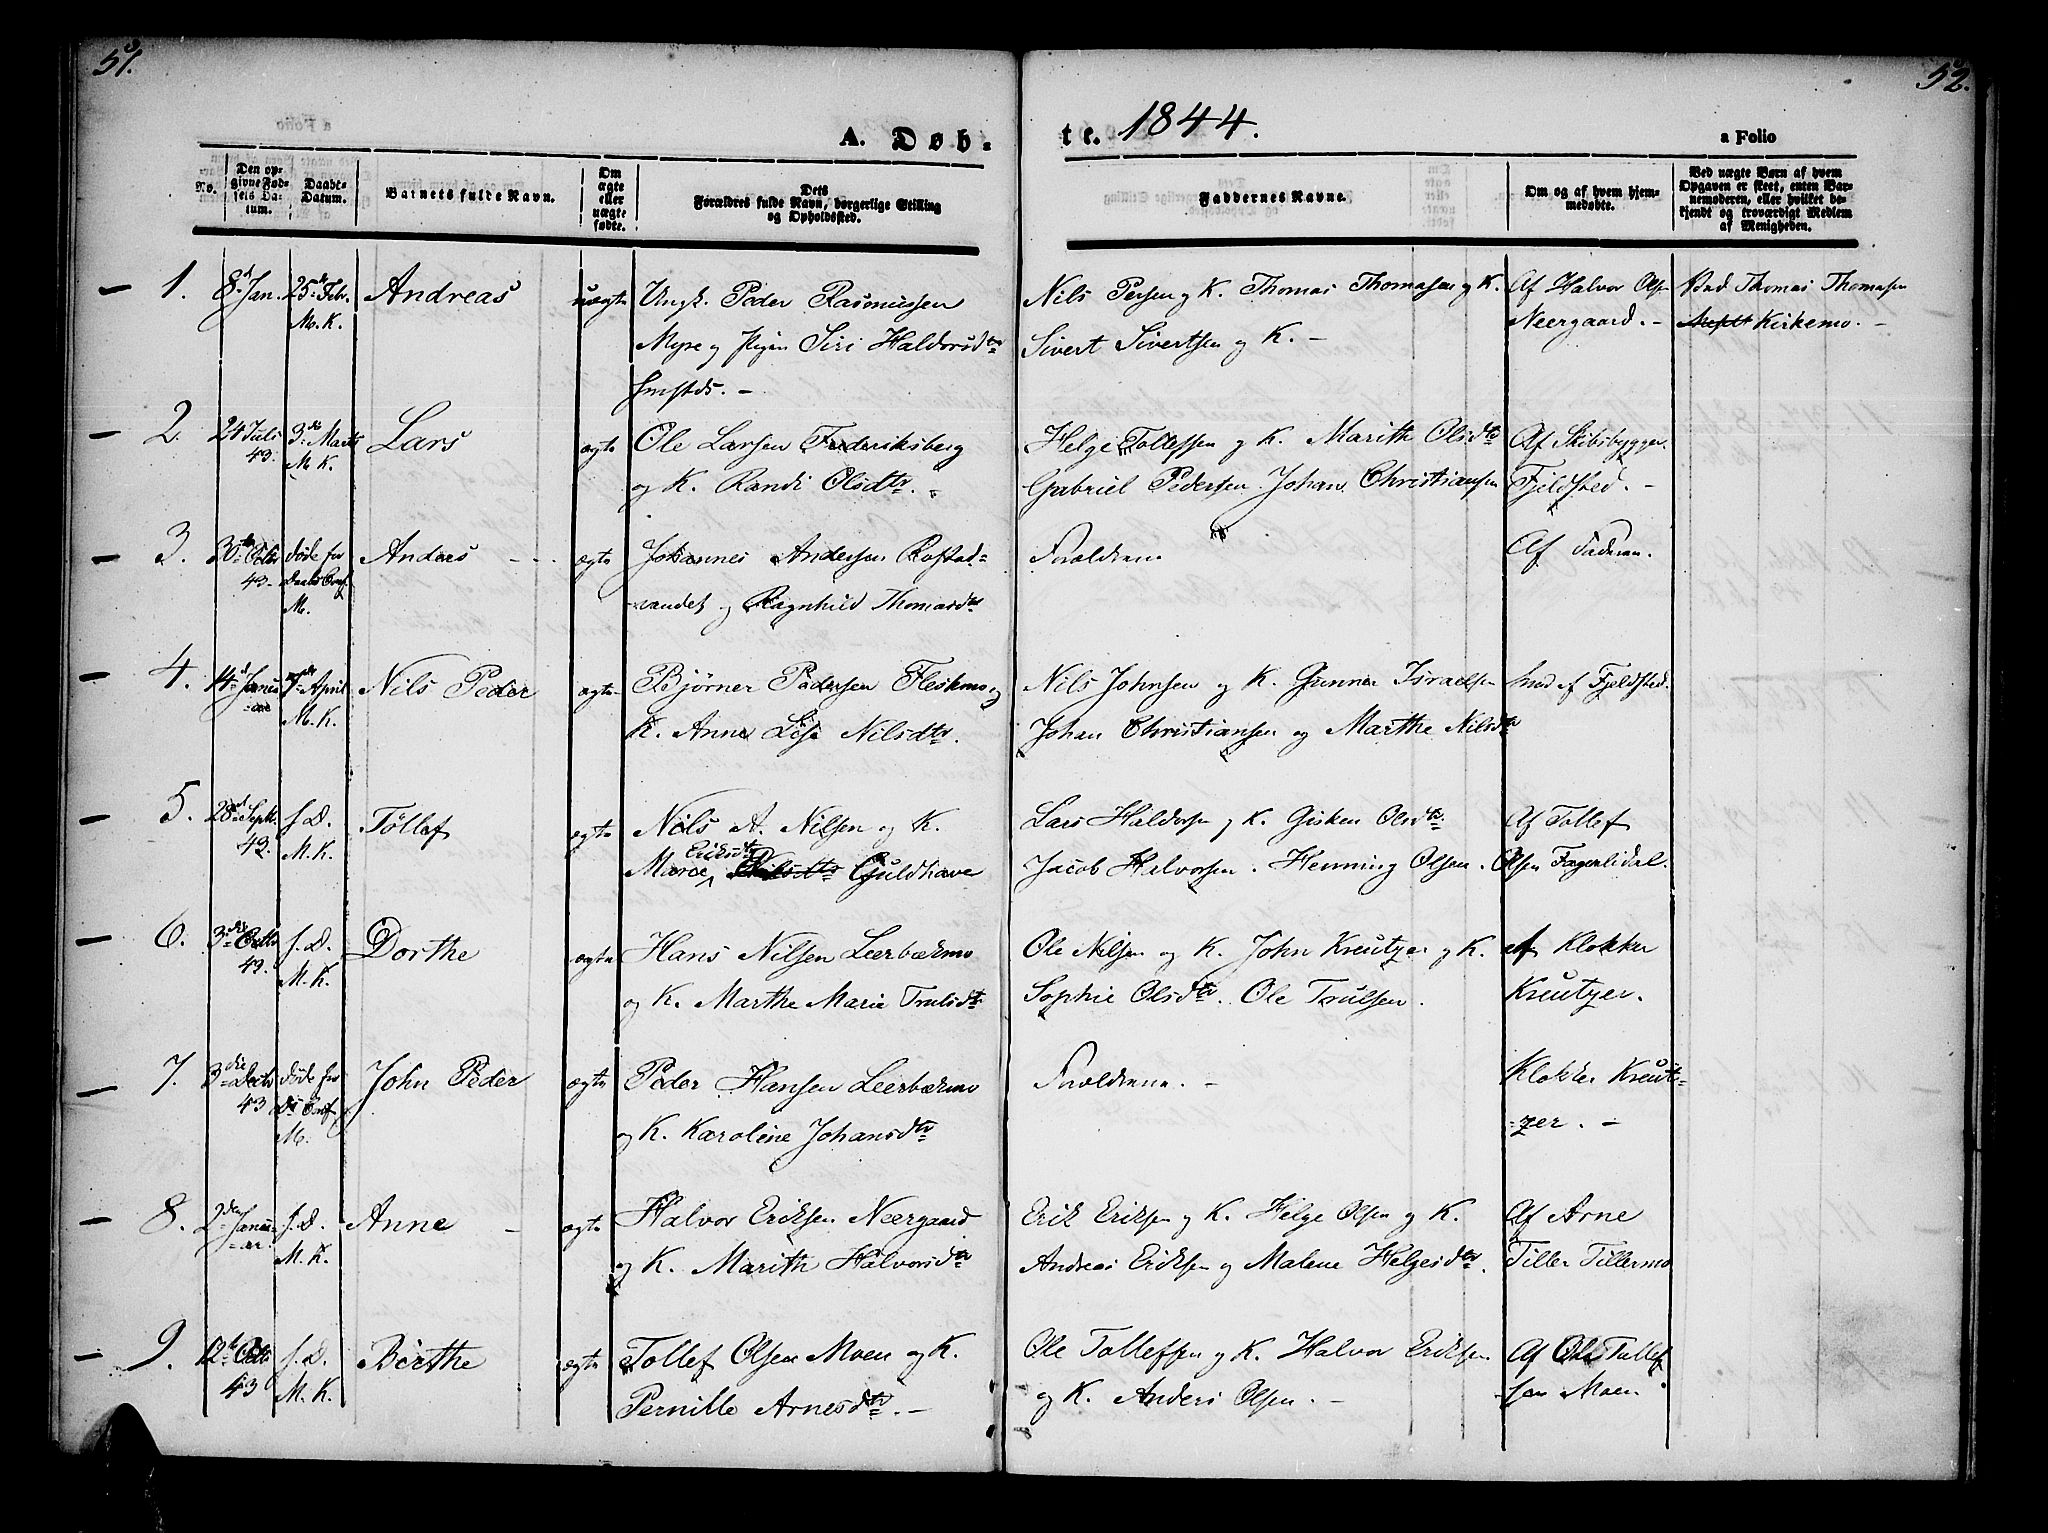 51.
52.
A. Døb-
te. 1844.
a Folio
No.
Den op-
givne Fød-
sels Da-
tum.
Daabs-
Datum.
Barnets fulde Navn.
Om
ægte
eller
uægte
fødte.
Dets
Forældres fulde Navn, borgerlige Stilling
og Opholdssted.
Faddernes Navne.
Om og af hvem hjem-
medøbte.
Ved uægte Børn af hvem
Opgaven er skeet, enten Bar-
nemoderen, eller hvilket be-
kjendt og troværdigt Medlem
af Menigheden.
1. 8d Jan. 25de Febr. Andreas uægte Ungk. Peder Rasmussen
M. K. Myre og Pigen Siri Haldorsdtr
Nils Persen og K. Thomas Thomasen og K.
Sivert Sivertsen og K. –
Af Halvor Olsen
Neergaard. –
Thomas Thomasen
Kirkemo. –
2. 24 Juli 3de Marts Lars ægte Ole Larsen Frederiksberg
43. M. K. og K. Randi Olsdtr.
Helge Tollefsen og K. Marith Olsdtr
Gabriel Pedersen. Johan Christiansen
Af Skibsbygger
Fjeldsted. –
3. 30te Octbr døde før Anders ægte Johannes Andersen Rostad-
43. Daabs Conf. vandet og Ragnhild Thomasdtr
M.
Forældrene
Af Faderen.
4. 14d Janu- 7de April Nils Peder ægte Bjørner Pedersen Fleskmo og
M. K. K. Anne Lise Nilsdtr.
Nils Johnsen og K. Gunner Israelsen
Johan Christiansen og Marthe Nilsdtr
af Fjeldsted.
5. 28d Septr. s. D. Tøllef ægte Nils A. Nilsen og K.
43. M. K. Maree Eriksdtr Nilsdtr Guldhave
Lars Haldorsen og K. Gisken Olsdtr.
Jacob Halvorsen. Henning Olsen.
Af Tollef
Olsen Fagerlidal.
6. 3die Octbr s. D. Dorthe ægte Hans Nilsen Leerbærmo
43. M. K. og K. Marthe Marie Trulsdtr
Ole Nilsen og K. John Kreutzer og K.
Sophie Olsdtr. Ole Trulsen.
af Klokker
Kreutzer.
7. 3die Decbr døde før John Peder ægte Peder Hansen Leerbærmo
43 D. Conf. og K. Karoline Johansdtr
M.
Forældrene. –
Klokker Kreut-
-zer. –
8. 2den Janu- s. D. Anne – ægte Halvor Eriksen Neergaard
-ar. M. K. og K. Marith Halvorsdtr
Erik Eriksen og K. Helge Olsen og K.
Andreas Eriksen og Malene Helgesdtr.
Af Arne
Tiller Tillermo
9. 12te Octbr s. D. Berthe ægte Tollef Olsen Moen og K.
43 M. K. Pernille Arnesdtr. –
Ole Tollefsen og K. Halvor Eriksen
og K. Anders Olsen. –
Af Ole Tollef
sen Moen